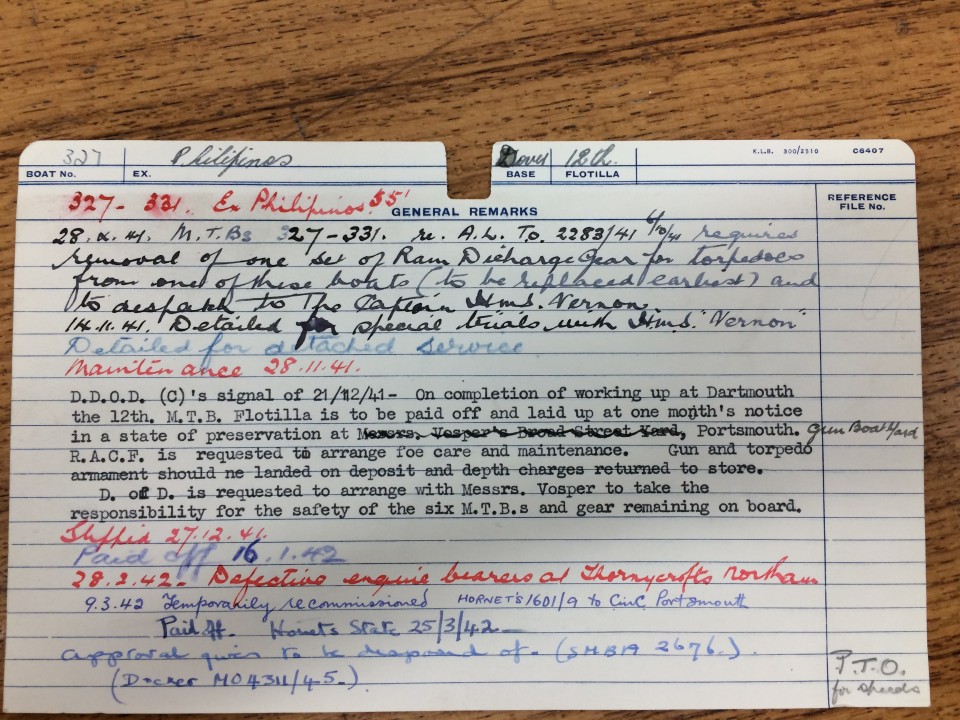 327 Philipinos Dover 12th. K.L.B. 300/2510 C6407
BOAT No. EX. BASE FLOTILLA
327 - 331. Ex Philipinos. 55'
GENERAL REMARKS
REFERENCE
FILE No.
28.x.41. M.T.Bs 327-331. re. A.L. To. 2283/41 6/10/41 requires
removal of one set of Ram Dicharge Gear for torpedoes
from one of these boats (to be replaced earliest) and
to despatch to The Captain H.M.S. Vernon.
14.11.41. Detailed for special trials with H.M.S. "Vernon"
Detailed for detached service
Maintenance 28.11.41.
D.D.O.D. (C)'s signal of 21/12/41- On completion of working up at Dartmouth
the 12th. M.T.B. Flotilla is to be paid off and laid up at one month's notice
in a state of preservation at Messrs. Vosper's Broad Street Yard, Portsmouth. Gun Boat Yard
R.A.C.F. is requested to arrange foe care and maintenance. Gun and torpedo
armament should ne landed on deposit and depth charges returned to store.
D. of D. is requested to arrange with Messrs. Vosper to take the
responsibility for the safety of the six M.T.B.s and gear remaining on board.
27.12.41.
Paid off 16.1.42
28.2.42 - Defective engine bearers at Thornycrofts Northam
9.3.42 Temporarily recommissioned HORNET'S 1601/9 to CinC Portsmouth
Paid off. Hornets State 25/3/42
approval given to be disposed of. (SMBA 2676.)
(Docker MO4311/45.)
P.T.O.
for speeds